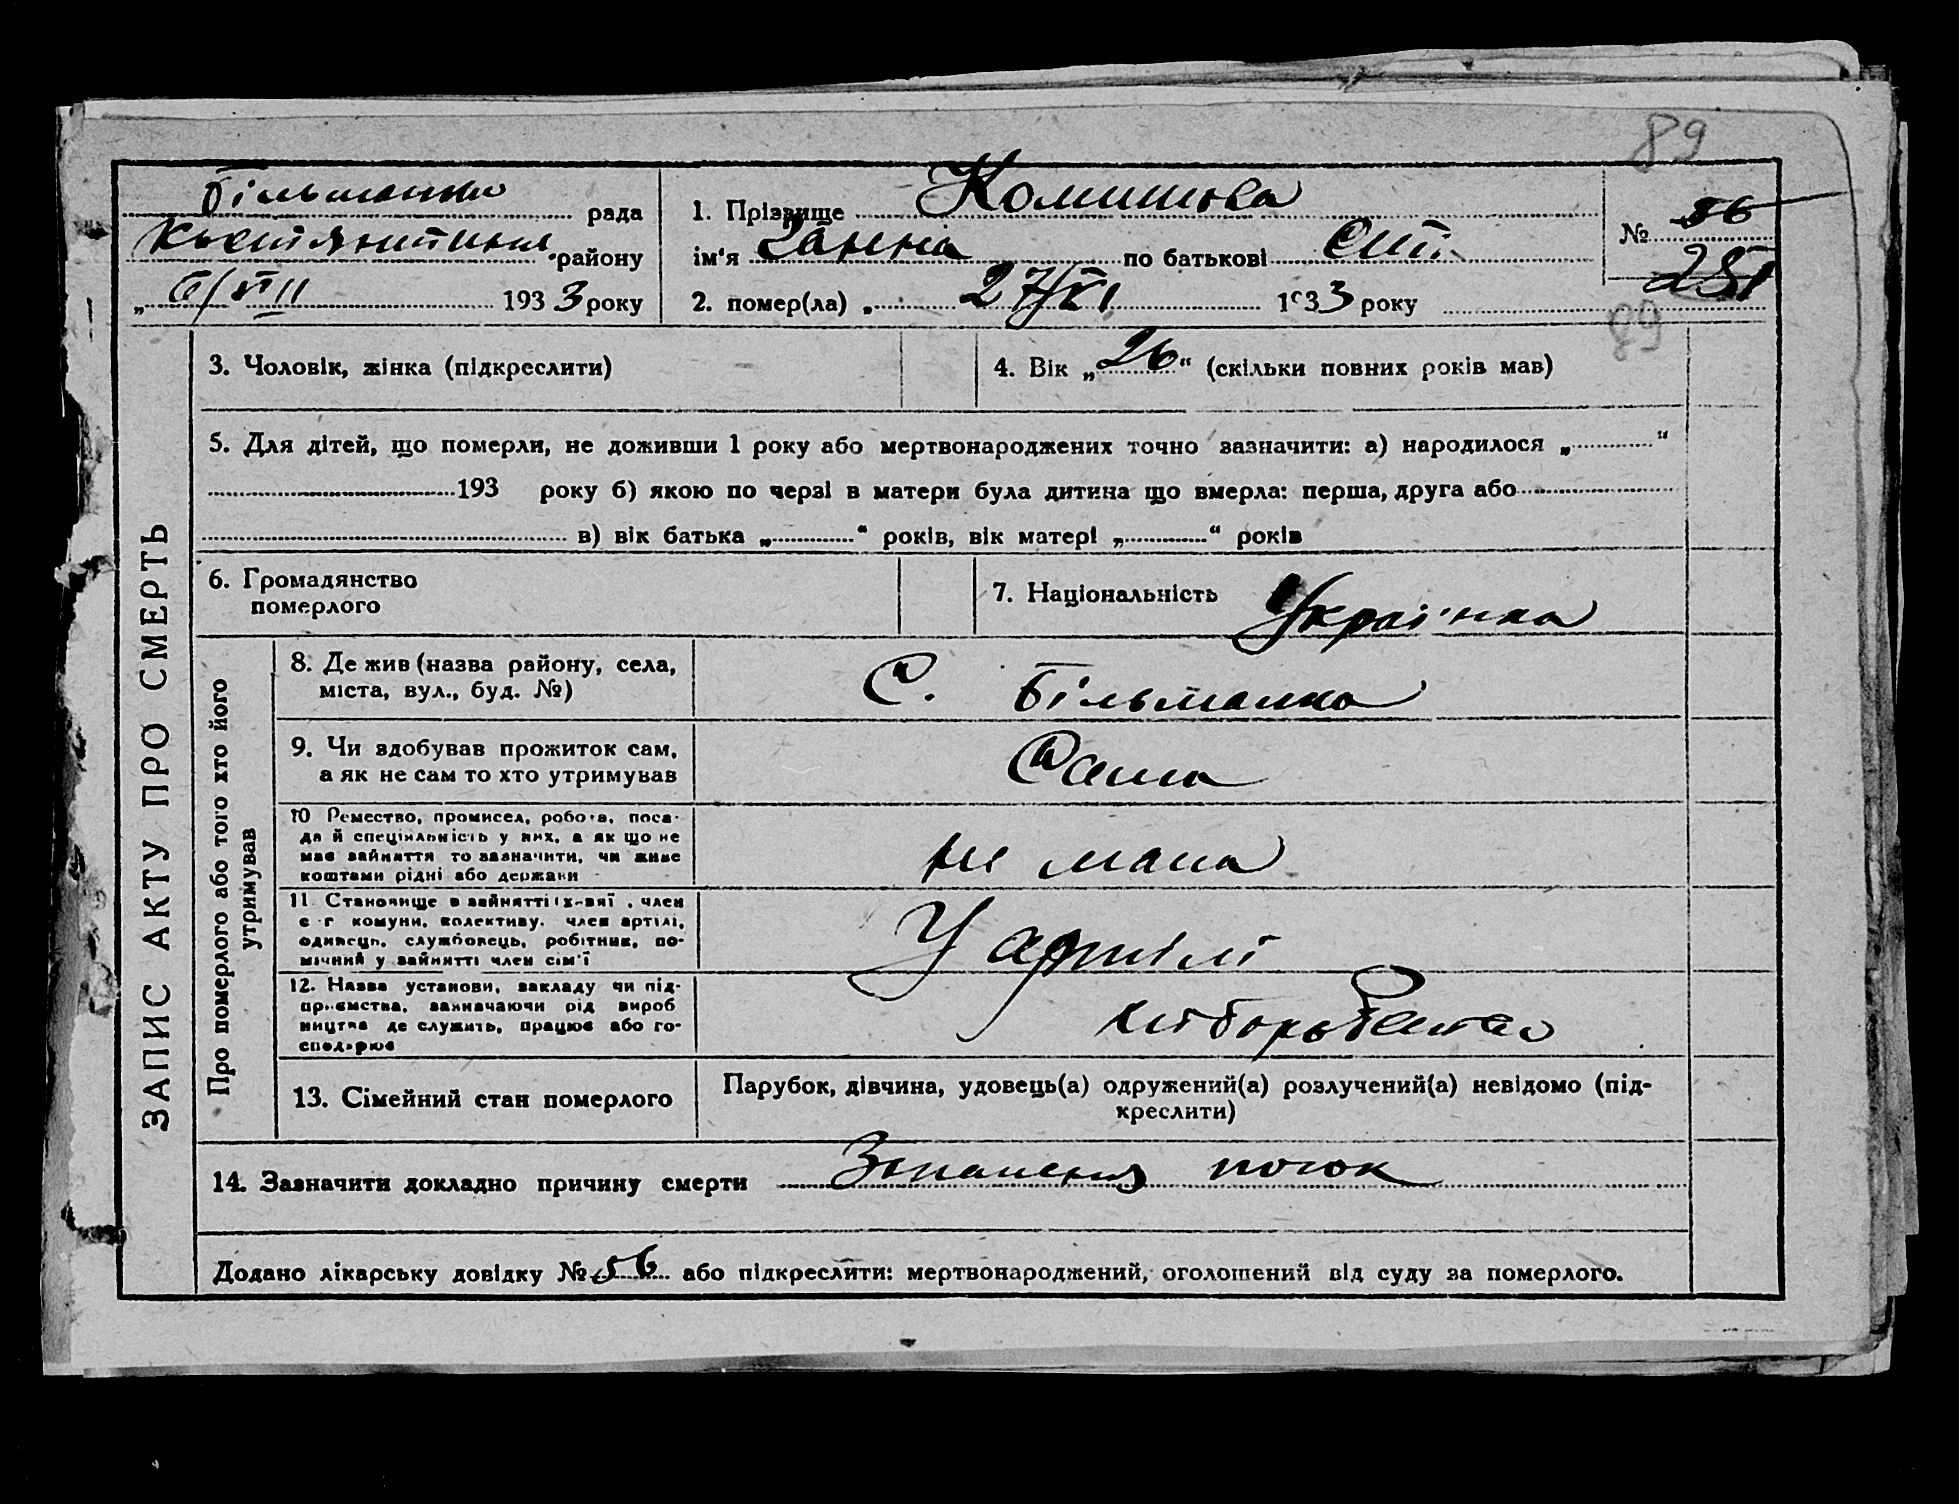 89
Більманка рада
1. Прізвище Комишова
№ 56
району
ім'я Ганна по батькові
251
„ 6/VIII 1933 року
2. помер(ла) „ 27/VI 1933 року
89
3. Чоловік, жінка (підкреслити)
4. Вік „ 26 “ (скільки повних років мав)
5. Для дітей, що померли, не доживши 1 року або мертвонароджених точно зазначити: а) народилося „ “
193 року б) якою по черзі в матери була дитина що вмерла: перша, друга або
в) вік батька „ “ років, вік матері „ “ років
6. Громадянство
померлого
7. Національність Українка
ЗАПИС АКТУ ПРО СМЕРТЬ
Про померлого або того хто його
утримував
8. Де жив (назва району, села,
міста, вул., буд. №)
С. Більманка
9. Чи здобував прожиток сам,
а як не сам то хто утримував
Сама
10 Ремество, промисел, робота, поса-
да й спеціяльність у них, а як що не
має зайняття то зазначити, чи живе
коштами рідні або держави
не мала
11. Становище в зайнятті член
с-г комуни, колективу, член артілі,
одинець, службовець, робітник, по-
мічний у зайнятті член сім'ї
У артілі
12. Назва установи, закладу чи під-
приємства, зазначаючи рід вироб
ництва де служить, працює або го-
сподарює
13. Сімейний стан померлого
Парубок, дівчина, удовець(а) одружений(а) розлучений(а) невідомо (під-
креслити)
14. Зазначити докладно причину смерти Запаленя
Додано лікарську довідку № 56 або підкреслити: мертвонароджений, оголошений від суду за померлого.